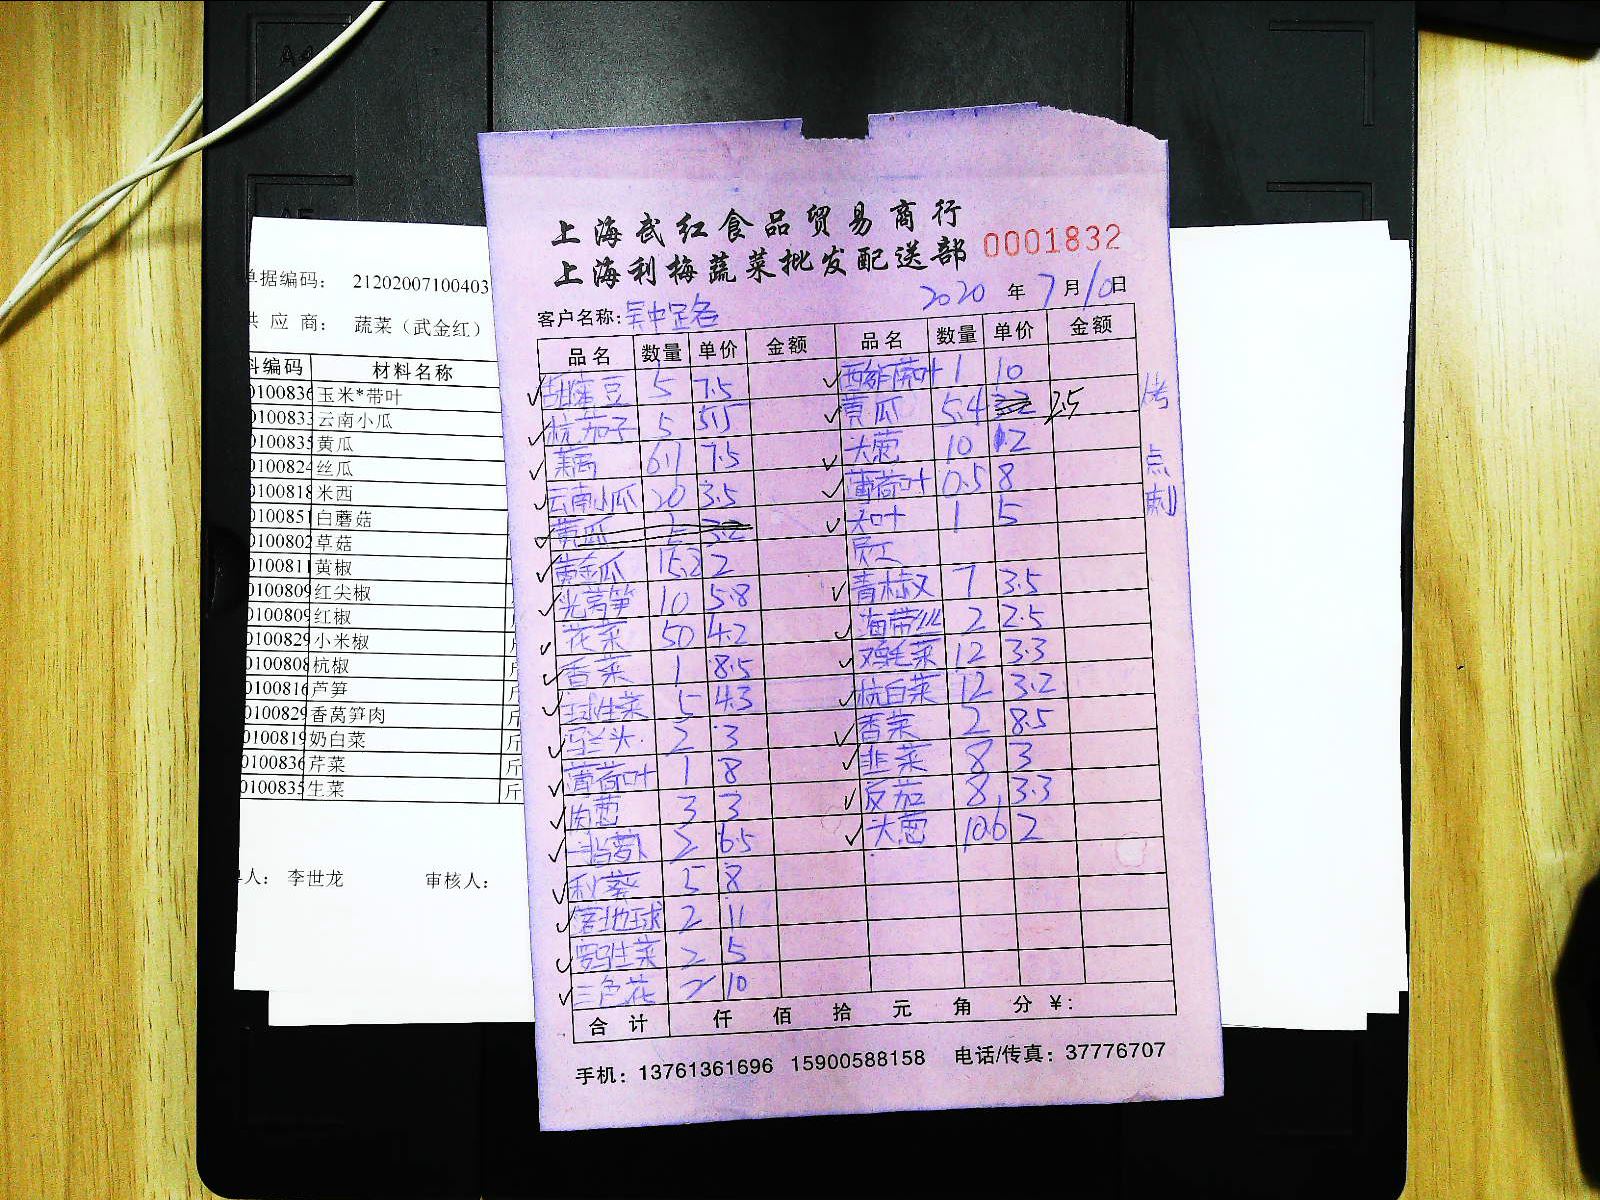 单据编码： 21202007100403
供 应 商： 蔬菜（武金红）
料编码 材料名称
0100836 玉米*带叶
0100833 云南小瓜
0100835 黄瓜
0100824 丝瓜
0100818 米西
0100851 白蘑菇
0100802 草菇
0100811 黄椒
0100809 红尖椒
0100809 红椒
0100829 小米椒
0100808 杭椒
0100816 芦笋
0100829 香莴笋肉
0100819 奶白菜
0100836 芹菜
0100835 生菜
斤
斤
斤
斤
斤
斤
人： 李世龙 审核人：
上海武红食品贸易商行
上海利梅蔬菜批发配送部 0001832
2020 年 7 月 10 日
客户名称：
品名 数量 单价 金额 品名 数量 单价 金额
豆 5 7.5 叶 1 10
杭茄子 5 5.5 黄瓜 5.4 3.2 2.5
藕 6.7 7.5 大葱 10 2
云南小瓜 20 3.5 薄荷叶 0.5 8
黄瓜 3.2 叶 1 5
黄金瓜 15.2 2 员工
光莴笋 10 5.8 青椒 7 3.5
花菜 50 4.2 海带丝 2 2.5
香菜 1 8.5 鸡毛菜 12 3.3
球生菜 5 4.3 杭白菜 12 3.2
马兰头 2 3 香菜 2 8.5
薄荷叶 1 8 韭菜 8 3
肉葱 3 3 茄 8 3.3
萝卜 2 6.5 大葱 10.6 2
秋葵 5 8
地球 2 11
罗马生菜 2 5
三色花 2 10
烤
点
刺
合 计 仟 佰 拾 元 角 分 ¥：
手机：13761361696 15900588158 电话/传真：37776707